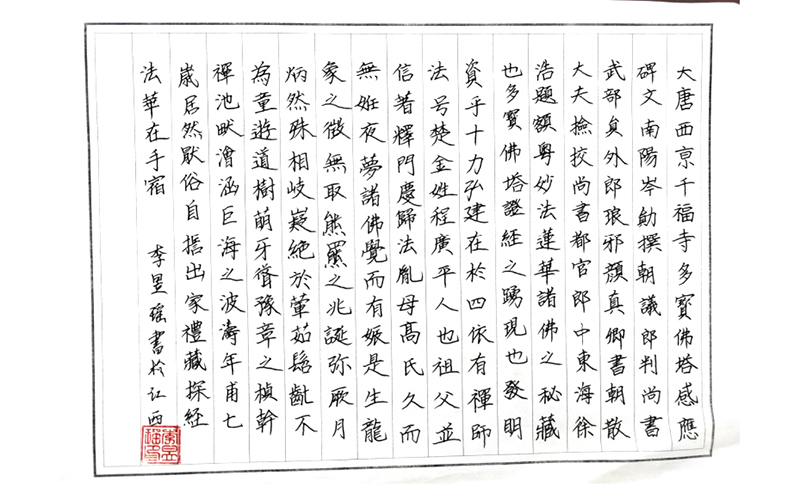 大唐西京千福寺多寶佛塔感應
碑文南陽岑勛撰朝議郎判尚書
武部員外郎琅邪顏真卿書朝散
大夫撿挍尚書都官郎中東海徐
浩題額粵妙法蓮華諸佛之秘藏
也多寶佛塔證經之踴現也發明
資乎十力弘建在於四依有禪師
法号楚金姓程廣平人也祖父並
信著釋門慶歸法胤母高氏久而
無姙夜夢諸佛覺而有娠是生龍
象之徵無取熊羆之兆誕弥厥月
炳然殊相岐嶷絕於葷茹髫齔不
為童遊道樹萌牙聳豫章之楨幹
禪池畎澮涵巨海之波濤年甫七
歲居然厭俗自誓出家禮藏探經
法華在手宿
李昱瑶書於江西